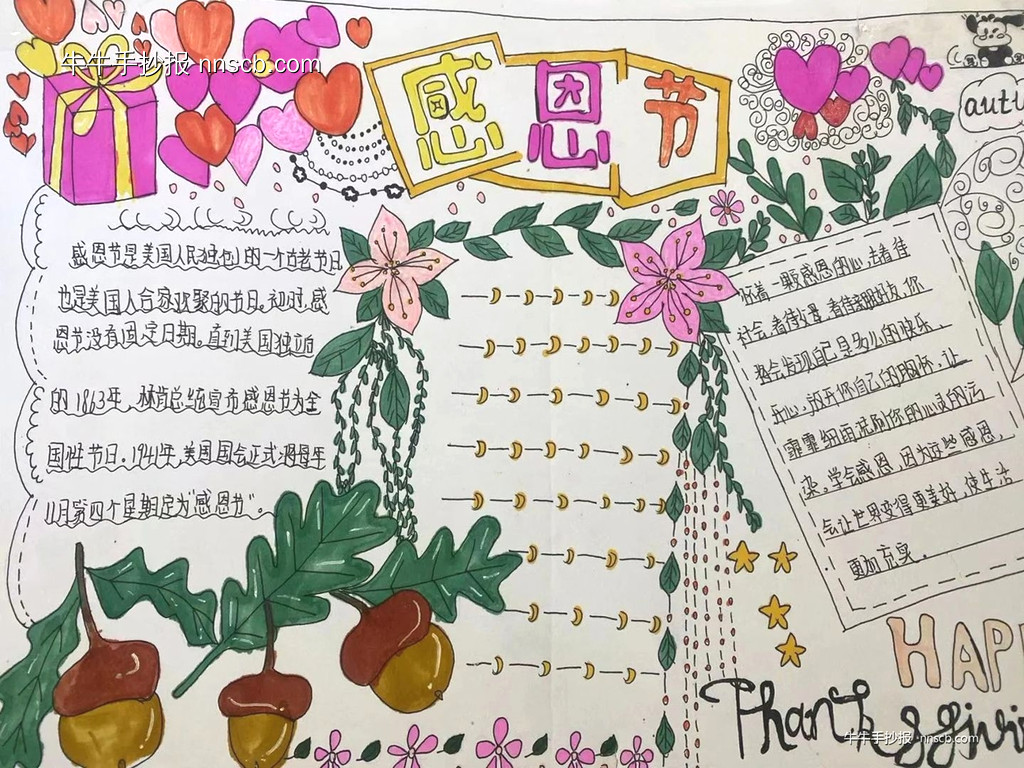 牛牛手抄报·nnscb.com
感恩节
autu
感恩节是美国人民独创的一个古老节日
也是美国人合家欢聚的节日。初时,感
恩节没有固定日期。直到美国独立后
的1863年,林肯总统宣布感恩节为全
国性节日。1941年,美国国会正式将每年
11月第四个星期定为"感恩节"。
怀着一颗感恩的心去看待
社会,看待父母,看待亲朋好友,你
将会发现自己是多么的快乐,
开心,放开你自己的胸怀,让
霏霏细雨洗刷你的心灵的污
染。学会感恩,因为这些感恩,
会让世界变得更美好,使生活
更加充实。
HAP
Thanksgivin
牛牛手抄报·nnscb.com